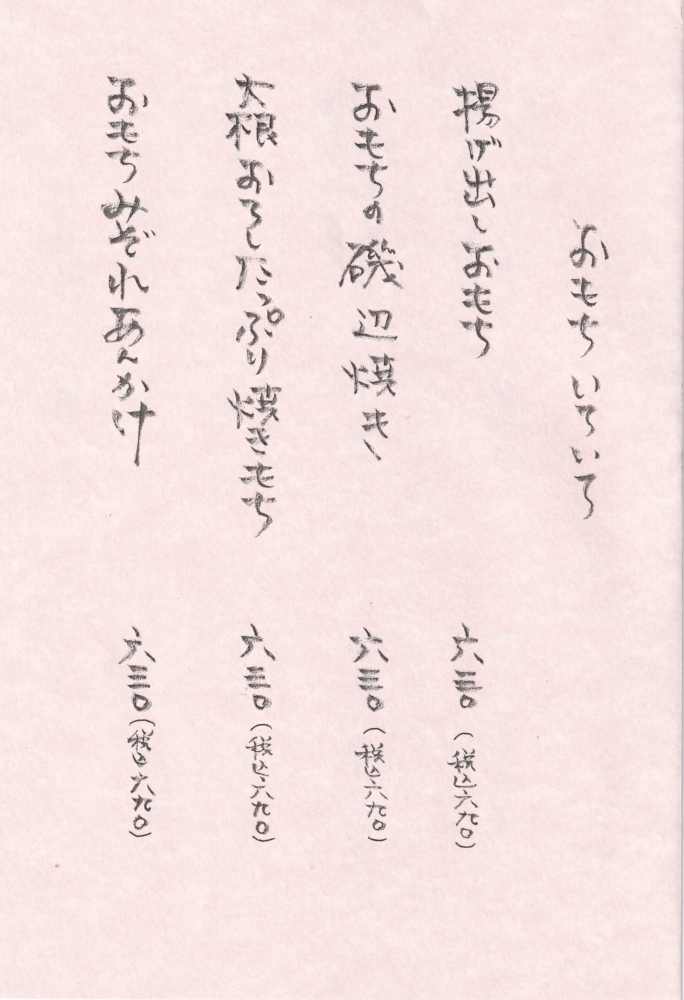 おもちいろいろ
揚げ出しおもち 六三〇(税込六九〇)
おもちの磯辺焼き 六三〇(税込六九〇)
大根おろしたっぷり焼きもち 六三〇(税込六九〇)
おもちみぞれあんかけ 六三〇(税込六九〇)